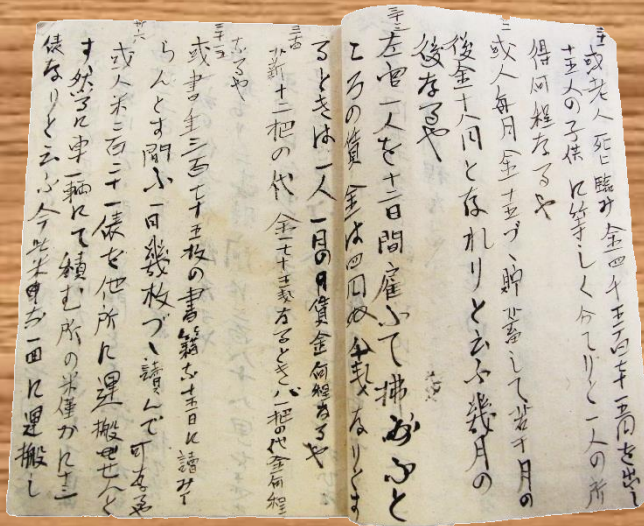 或老人死ニ臨ミ金四千五百七十五円を出し
十五人の子供に等しく分てりと一人の所
得何程なるや
或人毎月金十五づゝ貯蓄して若干月の
後金十八円となれりと云ふ幾月の
後なるや
左官一人を十二日間雇ふて拂ふと
ころの賃金は四円なりとす
るときは一人一日の賃金何程なるや
薪十二把の代金なるときハ一把の代金何程
なるや
或書金三百七十五枚の書籍を十五日に讀み了
らんとす問ふ一日幾枚づゝ讀んで可なるや
或人米二百二十一俵を他所に運搬せんと
す然るに車一輌にて積む所の米僅かに十三
俵なりと云ふ今此米を一回に運搬し